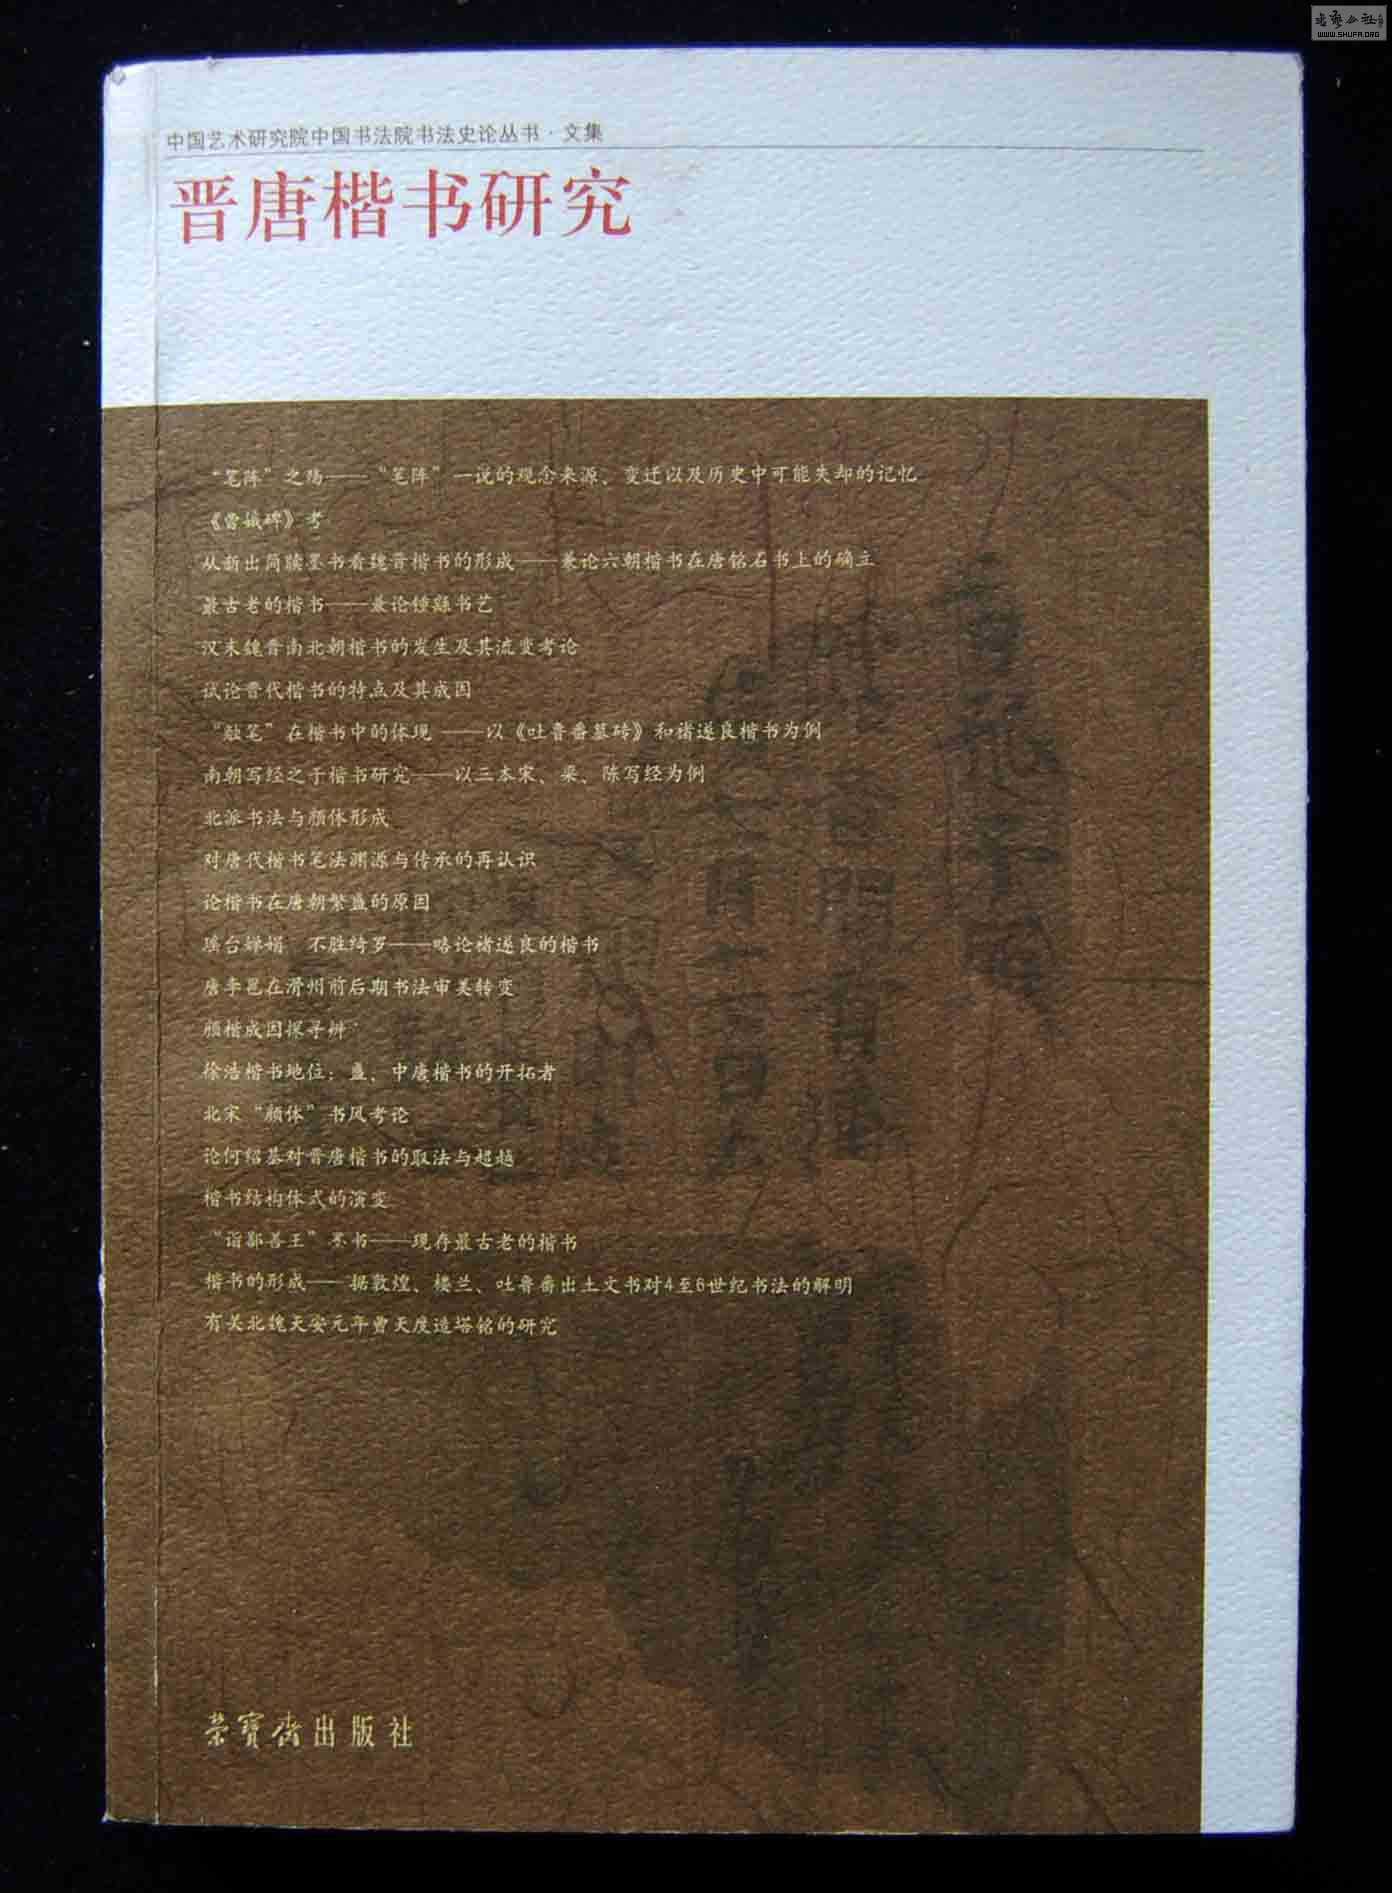 书艺公社
WWW.SHUFA.ORG
中国艺术研究院中国书法院书法史论丛书·文集
晋唐楷书研究
“笔阵”之殇——“笔阵”一说的观念来源、变迁以及历史中可能失却的记忆
《曹娥碑》考
从新出简牍墨书看魏晋楷书的形成——兼论六朝楷书在唐铭石书上的确立
最古老的楷书——兼论锺繇书艺
汉末魏晋南北朝楷书的发生及其流变考论
试论晋代楷书的特点及其成因
“触笔”在楷书中的体现——以《吐鲁番墓砖》和褚遂良楷书为例
南朝写经之于楷书研究——以三本宋、梁、陈写经为例
北派书法与颜体形成
对唐代楷书笔法渊源与传承的再认识
论楷书在唐朝繁盛的原因
瑶台婵娟 不胜绮罗——略论褚遂良的楷书
唐李邕在滑州前后期书法审美转变
颜楷成因探寻辨
徐浩楷书地位：盛、中唐楷书的开拓者
北宋“颜体”书风考论
论何绍基对晋唐楷书的取法与超越
楷书结构体式的演变
“诣鄯善王”木书——现存最古老的楷书
楷书的形成——据敦煌、楼兰、吐鲁番出土文书对4至6世纪书法的解明
有关北魏天安元年曹天度造塔铭的研究
荣宝斋出版社